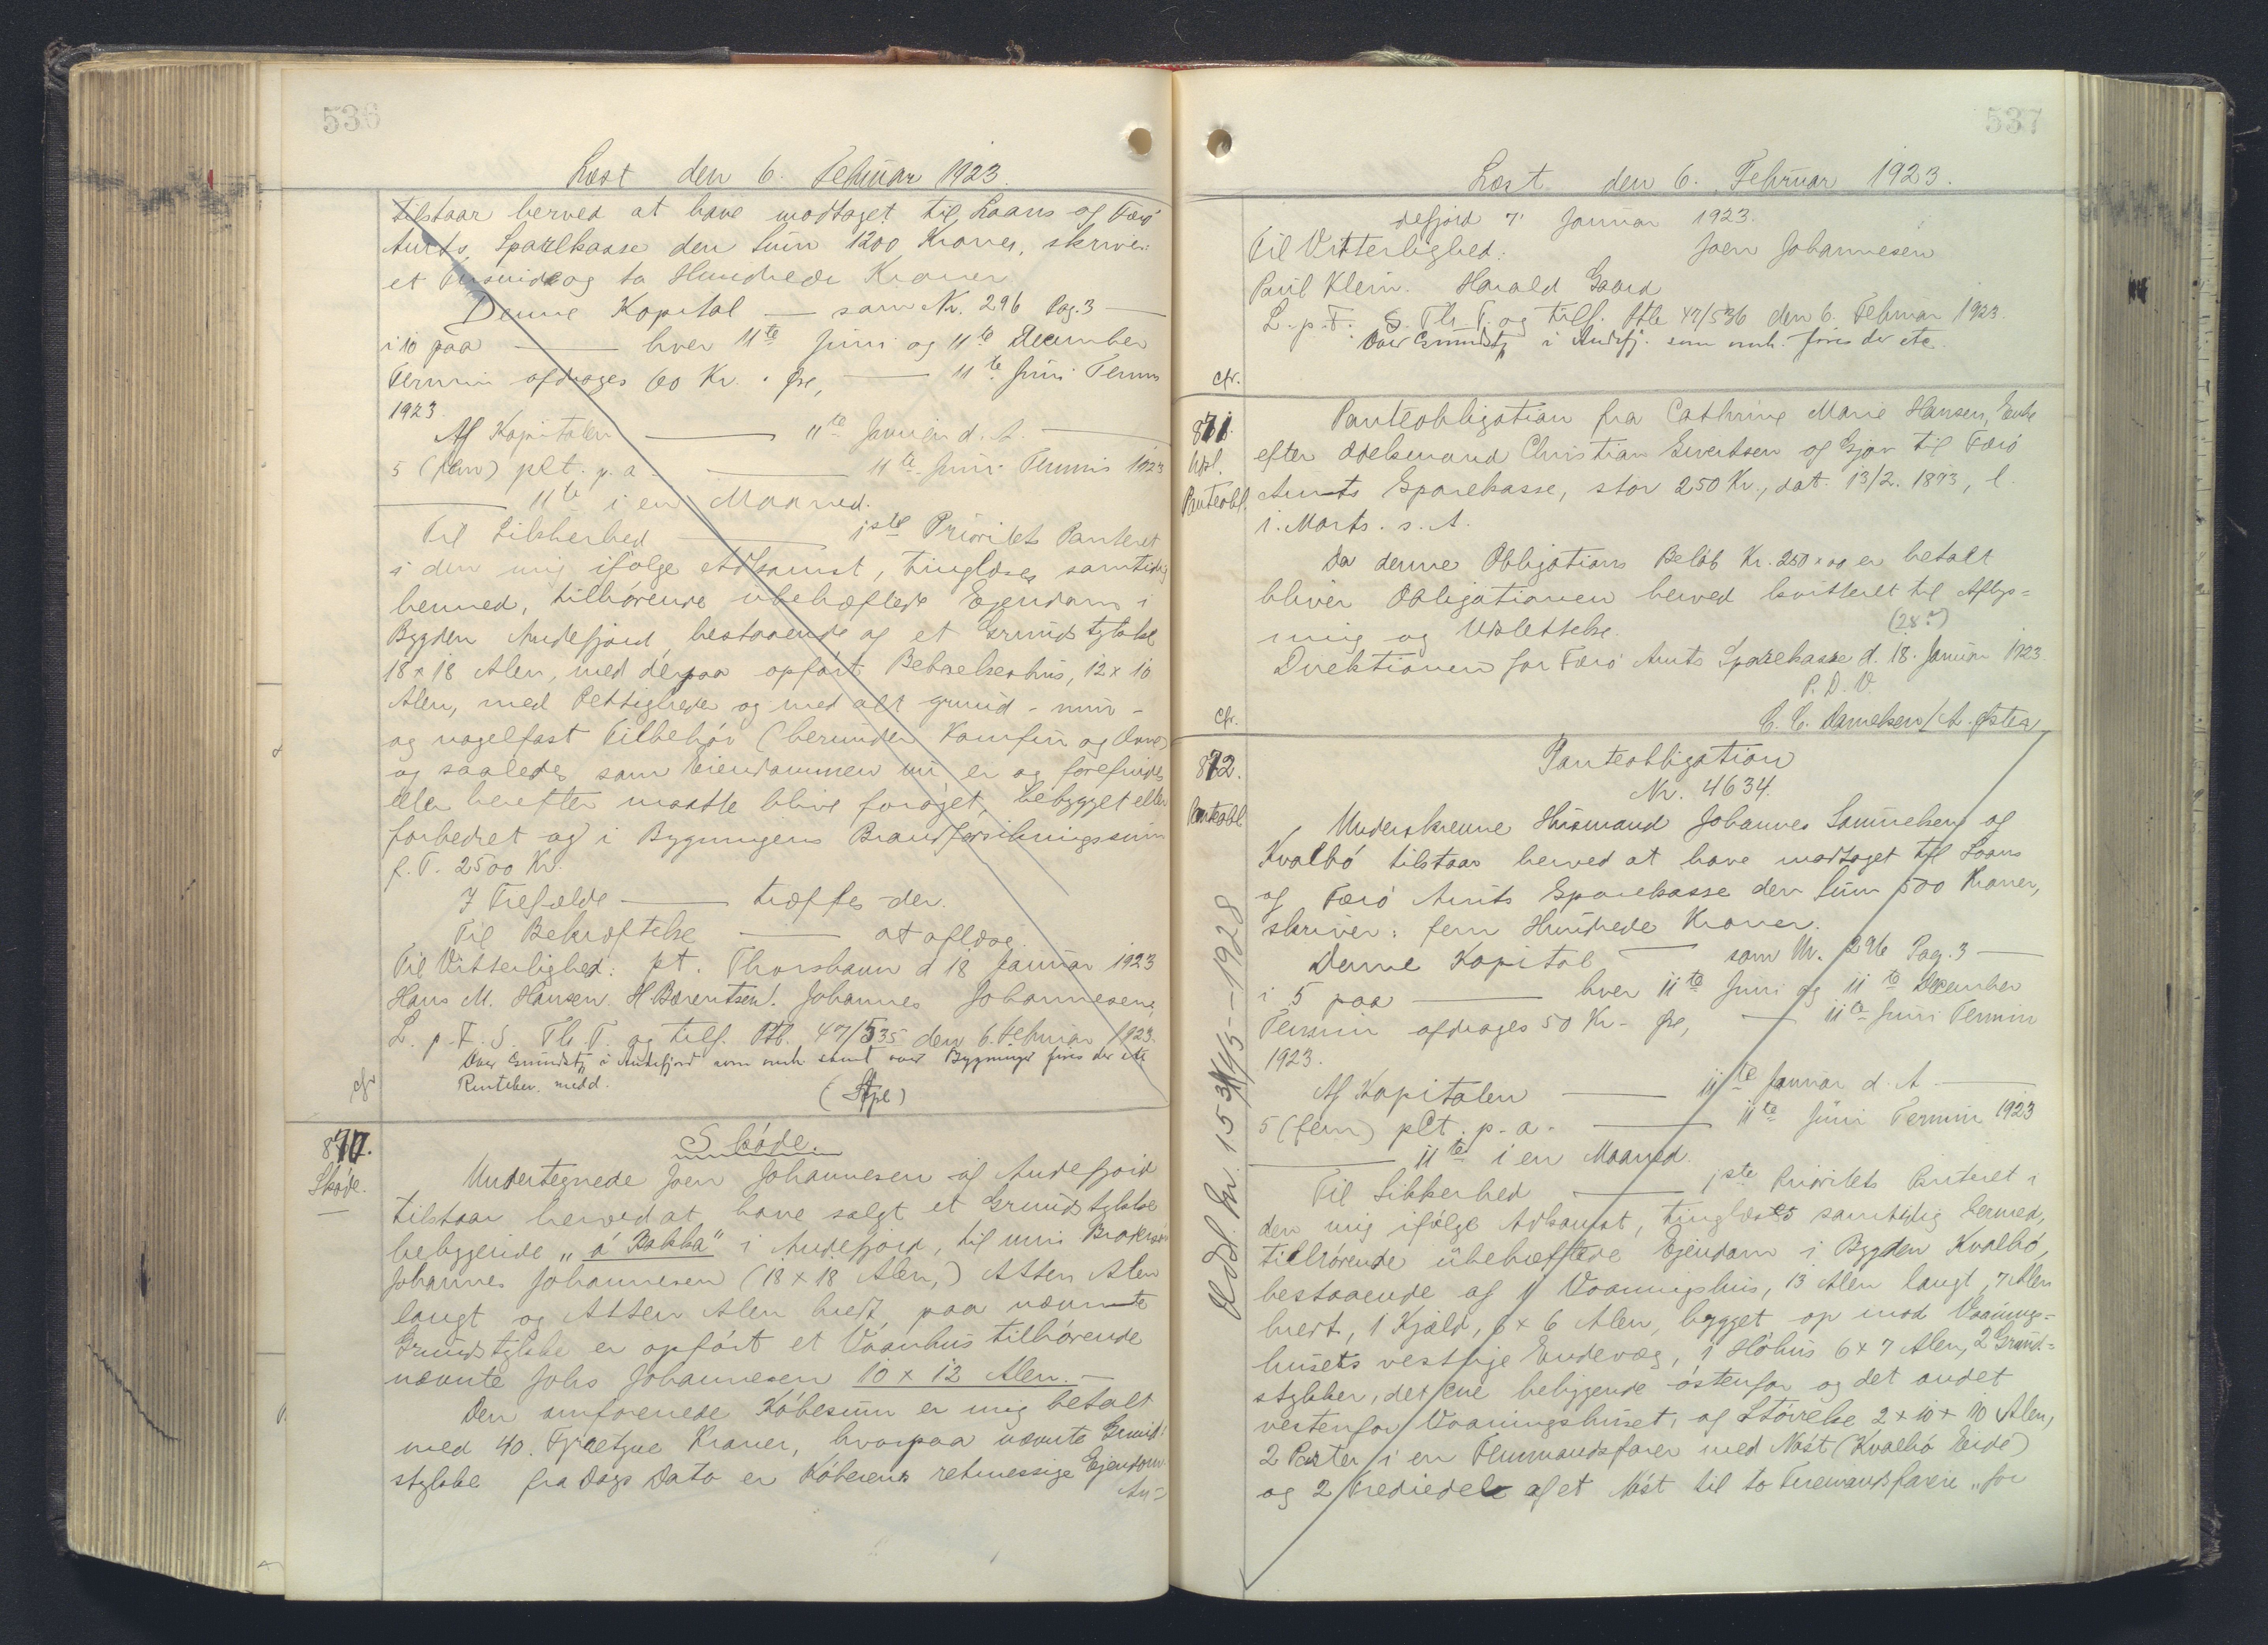 536
Læst den 6. Februar 1923.
tilstaar herved at have modtaget til Laans af Færø
Amts Sparekasse den Sum 1200 Kroner, skriver:
et Tusinde og to Hundrede Kroner
Denne Kapital — som Nr. 296 Pag. 3 —
i 10 paa — hver 11te Juni og 11te December
Termin afdrages 60 Kr. " Øre, — 11te Juni Termin
1923
Af Kapitalen — 11te Januar d. A. —
5 (fem) pCt. p. a. — 11te Juni Termin 1923
— 11te i en Maaned.
Til Sikkerhed — 1ste Prioritets Panteret
i den mig ifølge Adkomst, tinglæses samtidig
hermed, tilhørende ubehæftede Ejendom i
Bygden Andefjord, bestaaende af et Grundstykke
18 x 18 Alen, med derpaa opført Beboelseshus, 12 x 10
Alen, med Rettigheder og med alt grund- mur-
og nagelfast Tilbehør (herunder Komfur og Ovne)
og saaledes som Eiendommen nu er og forefindes
eller herefter maatte blive forøget, bebygget eller
forbedret og i Bygningens Brandforsikringssum
p. T. 2500 Kr.
I Trefælde — træffes der.
Til Bekræftelse — at aflæse.
Til Vitterlighed: pt. Thorshavn d 18 Januar 1923
Hans M. Hansen. H Bærentsen. Johannes Johannesen,
L. p. T. S. Th. T. og tilf. Ptb. 47/535 den 6. Februar 1923.
Over Grundst. i Andefjord som anh samt over Bygninger fores der etc
Rentebev. medd.
cfr
870.
Skøde.
Skøde.
Undertegnede Joen Johannesen af Andefjord
tilstaar herved at have solgt et Grundstykke
beliggende „á Bakka" i Andefjord, til min Brodersøn
Johannes Johannesen (18 x 18 Alen,) Atten Alen
langt og Atten Alen bredt, paa nævnte
Grundstykke er opført et Vaanhus tilhørende
nævnte Johs Johannesen 10 x 12 Alen. —
Den omforenede Købesum er mig betalt
med 40. Fyrretyve Kroner, hvorpaa nævnte Grund-
stykke fra Dags Dato er Køberens retmessige Ejendom.
An=
537
Læst den 6. Februar 1923.
defjord 7' Januar 1923.
Til Vitterlighed: Joen Johannesen
Paul Klein. Harald Gaard
L. p. T. S. Th. T. og tilf. Ptb 47/536 den 6. Februar 1923.
Over Grundst i Andefj. som anh. fores der etc
cfr.
871.
Udsl.
Panteobl.
Panteobligation fra Cathrine Marie Hansen, Enke
efter Odelsmand Christian Sivertsen af Gjov til Færø
Amts Sparekasse, stor 250 Kr., dat. 13/2. 1893, l.
1. Marts. s. A.
Da denne Obligations Beløb Kr. 250 x 00 er betalt
bliver Obligationen herved kvitteret til Aflys=
ning og Udslettelse.
Direktionen for Færø Amts Sparekasse d. 18. Januar 1923
P. D. V.
C. C. Danielsen / A. Øster
cfr.
872.
Panteobl
Panteobligation
Nr. 4634.
Underskrevne Husmand Johannes Samuelsen af
Kvalbø tilstaar herved at have modtaget til Laans
af Færø Amts Sparekasse den Sum 500 Kroner,
skriver: fem Hundrede Kroner.
Denne Kapital — som Nr. 296 Pag. 3 —
i 5 paa — hver 11te Juni og 11te December
Termin afdrages 50 Kr - Øre, — 11te Juni Termin
1923.
Af Kapitalen — 11te Januar d. A. —
5 (fem) pCt. p. a. — 11te Juni Termin 1923
— 11te i en Maaned.
Til Sikkerhed — 1ste Prioritets Panteret i
den mig ifølge Adkomst, tinglæstes samtidig hermed,
tilhørende ubehæftede Ejendom i Bygden Kvalbø,
bestaaende af 1 Vaaningshus, 13 Alen langt, 7 Alen
bredt, 1 Kjald, 6 x 6 Alen, bygget op mod Vaanings=
husets vestlige Endevæg, 1 Høhus 6 x 7 Alen, 2 Grund=
stykker, det ene beliggende østenfor og det andet
vestenfor Vaaningshuset, af Størrelse 2 x 10 x 10 Alen,
2 Parter i en Femmandsfarer med Nøst (Kvalbø Eide)
og 2 Trediedele af et Nøst til to Firemandsfarere „for
Udsl. Nr. 153 1/5 - 1928